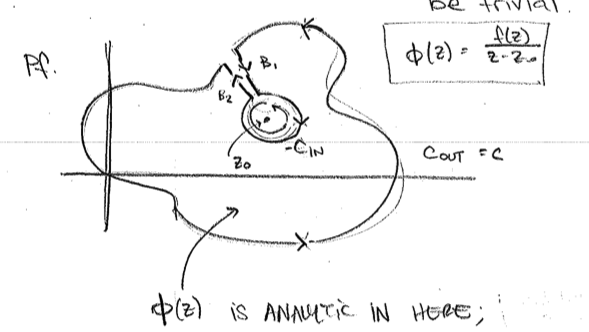 be trivial.
Pf.
ϕ(z) = f(z)/z-z₀
B₁
B₂
-C_IN
z₀
C_OUT = C
ϕ(z) IS ANALYTIC IN HERE;